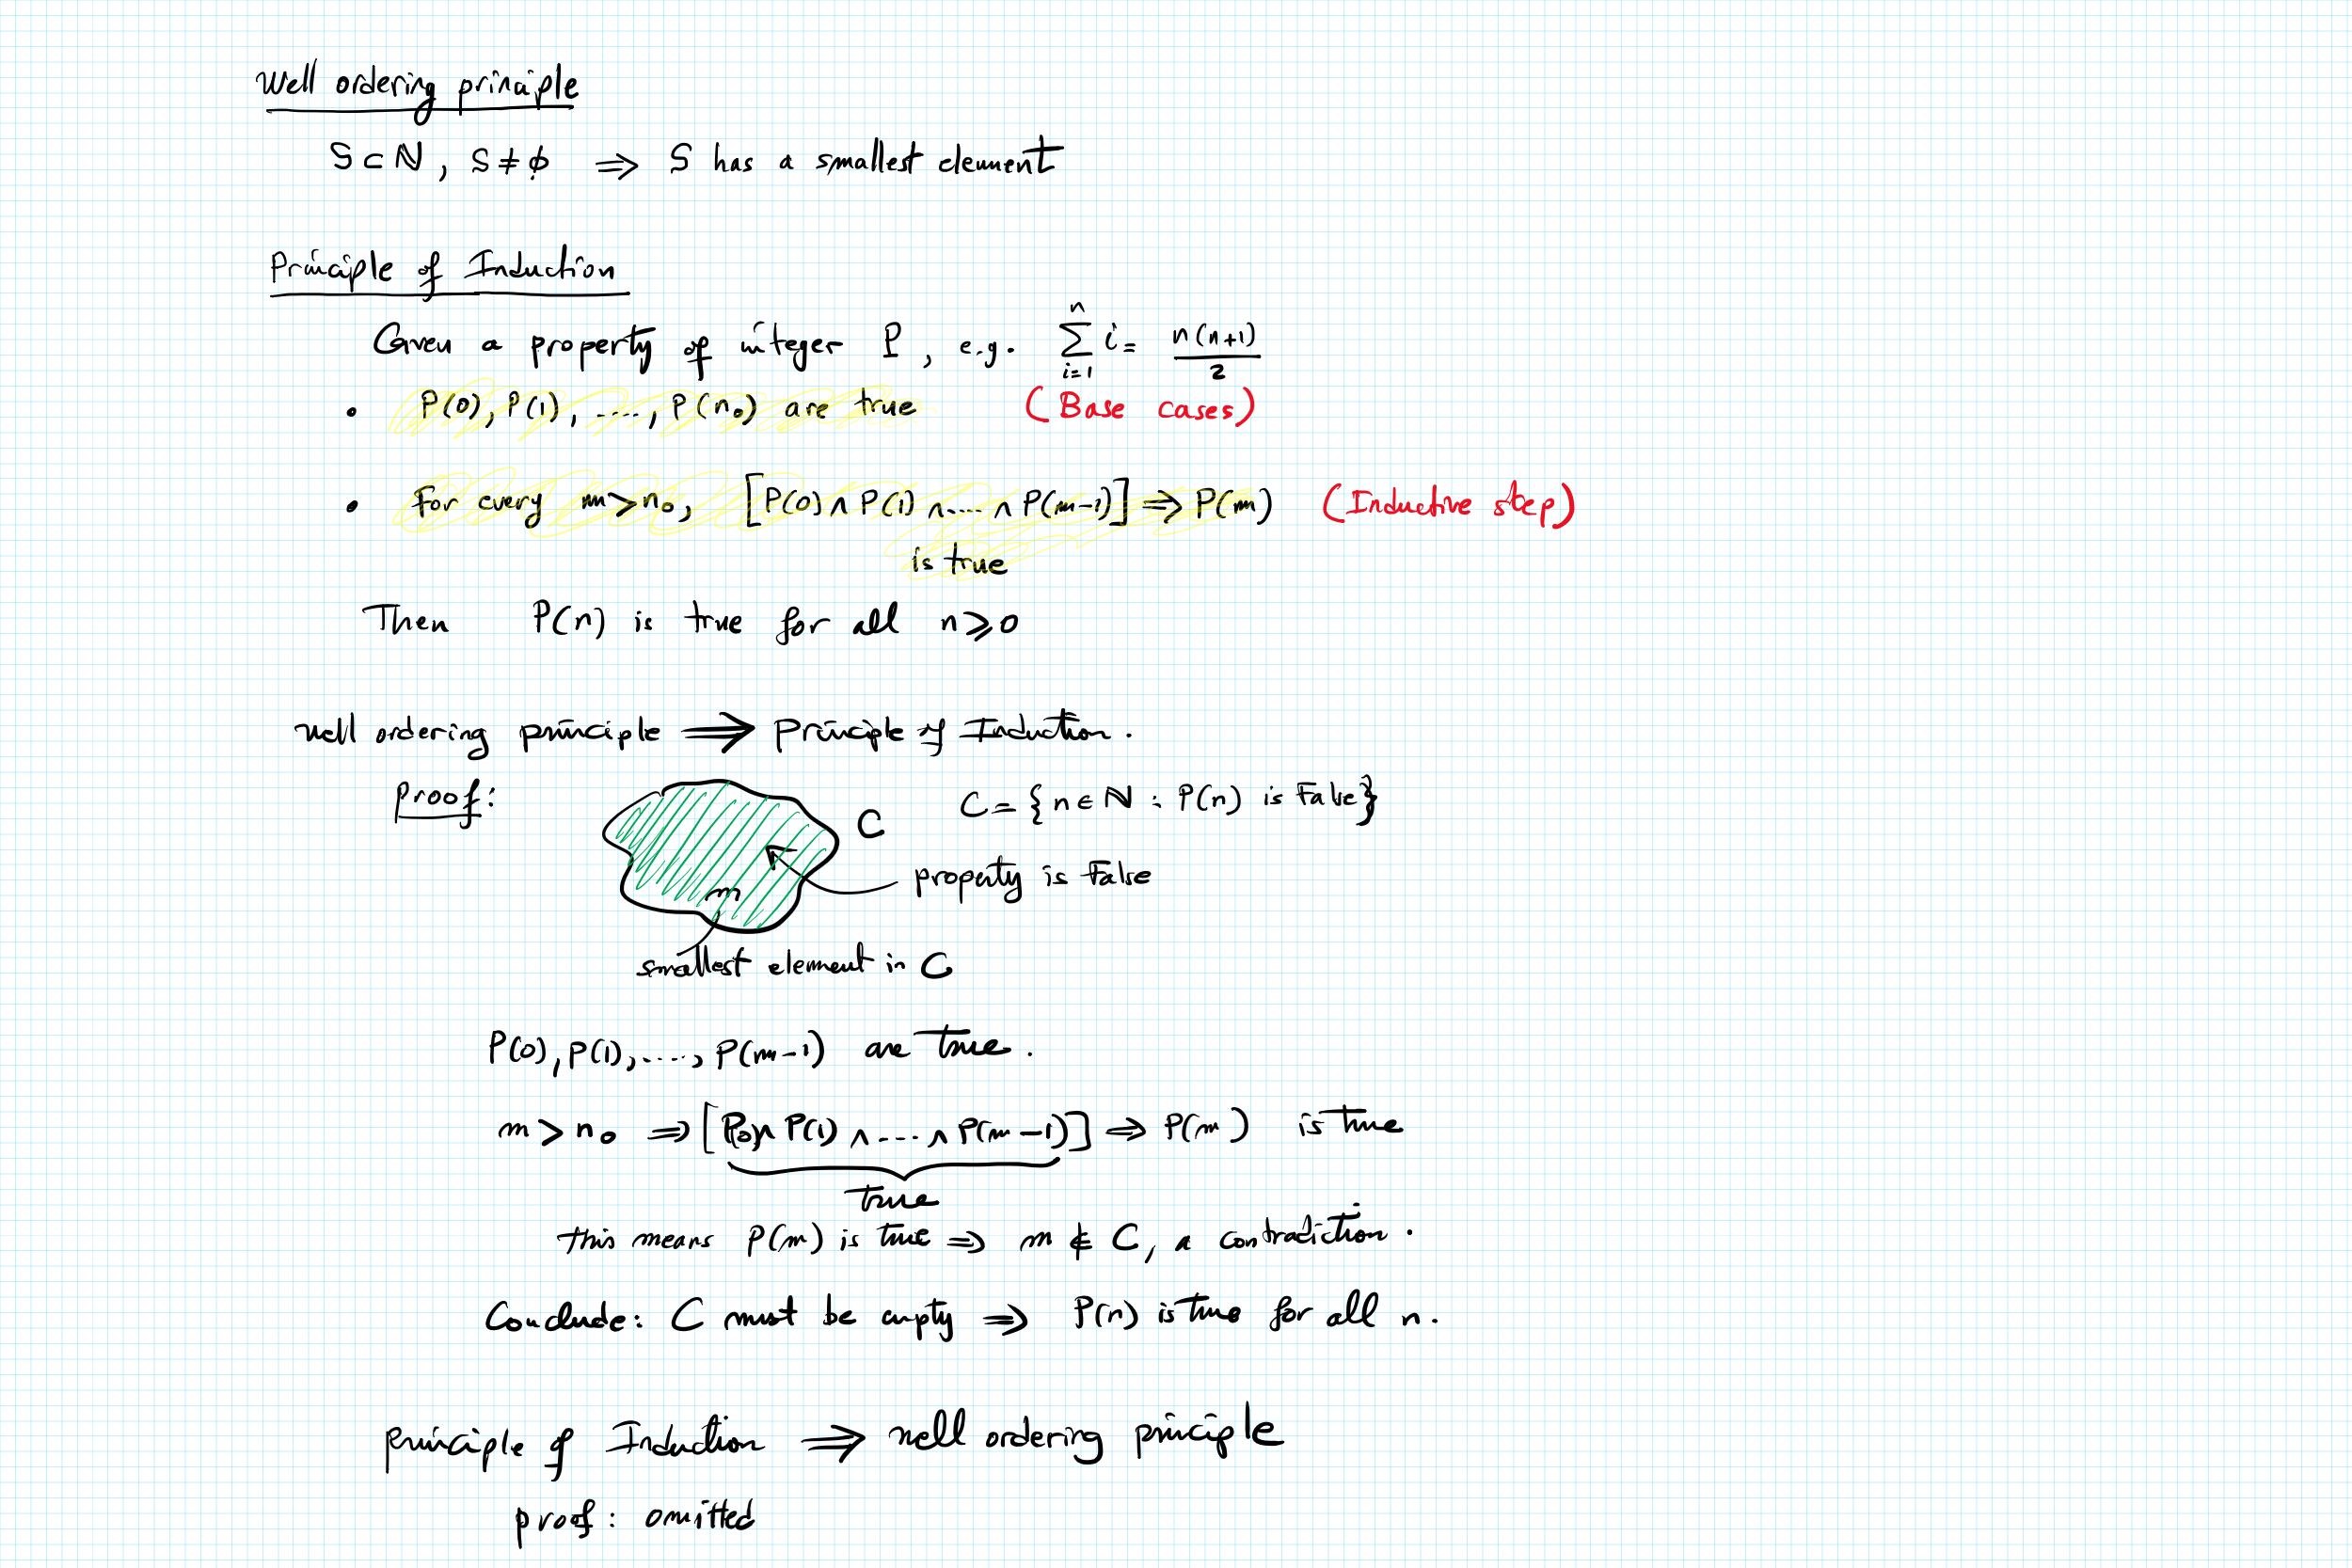 Well ordering principle
S ⊂ ℕ, S ≠ ϕ ⇒ S has a smallest element
Principle of Induction
Given a property of integer P, e.g. \sum_{i=1}^{n} i = \frac{n(n+1)}{2}
• P(0), P(1), ...., P(n₀) are true (Base cases)
• For every m > n₀, [P(0) ∧ P(1) ∧ .... ∧ P(m-1)] ⇒ P(m) (Inductive step)
is true
Then P(n) is true for all n ⩾ 0
well ordering principle ⇒ Principle of Induction.
Proof:
C = {n ∈ ℕ : P(n) is False}
C
property is False
m
smallest element in C
P(0), P(1), ...., P(m-1) are true.
m > n₀ ⇒ [P(0) ∧ P(1) ∧ .... ∧ P(m-1)] ⇒ P(m) is true
true
this means P(m) is true ⇒ m ∉ C, a contradiction.
Conclude: C must be empty ⇒ P(n) is true for all n.
principle of Induction ⇒ well ordering principle
proof: omitted